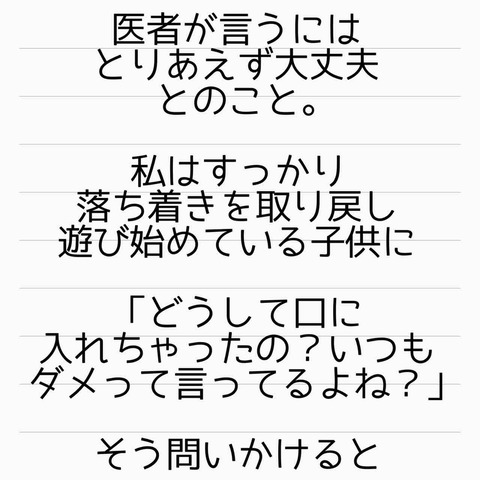 医者が言うには
とりあえず大丈夫
とのこと。
私はすっかり
落ち着きを取り戻し
遊び始めている子供に
「どうして口に
入れちゃったの？いつも
ダメって言ってるよね？」
そう問いかけると